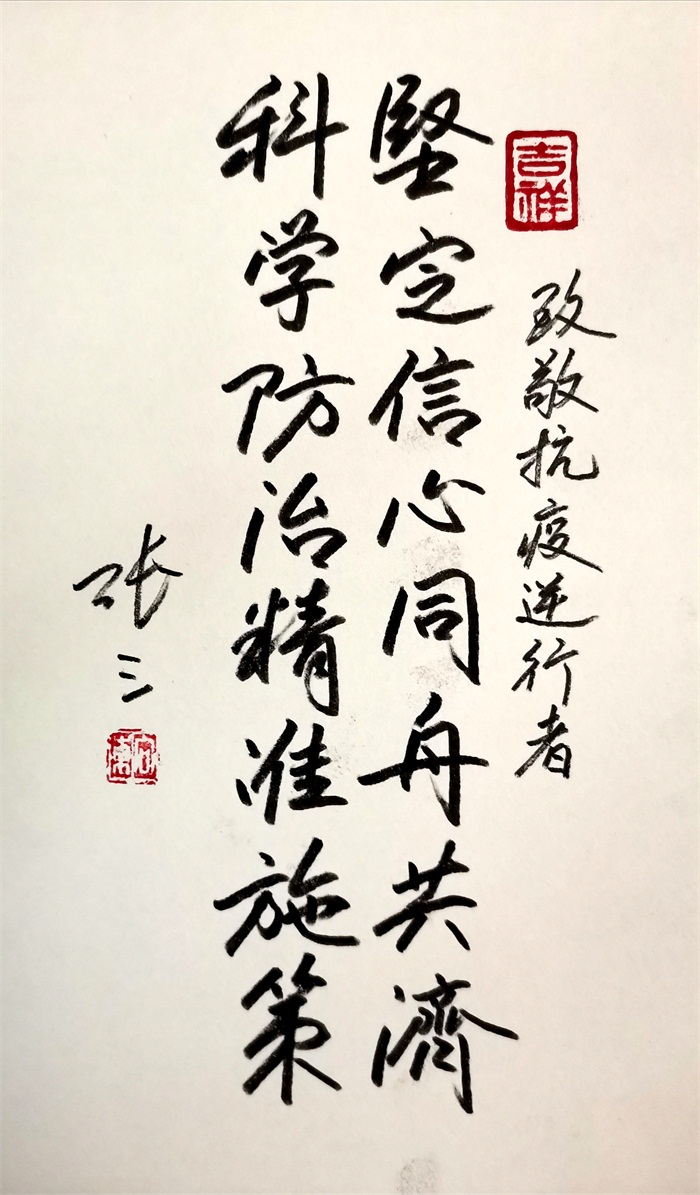 吉祥
致敬抗疫逆行者
堅定信心同舟共濟
科学防治精准施策
张三